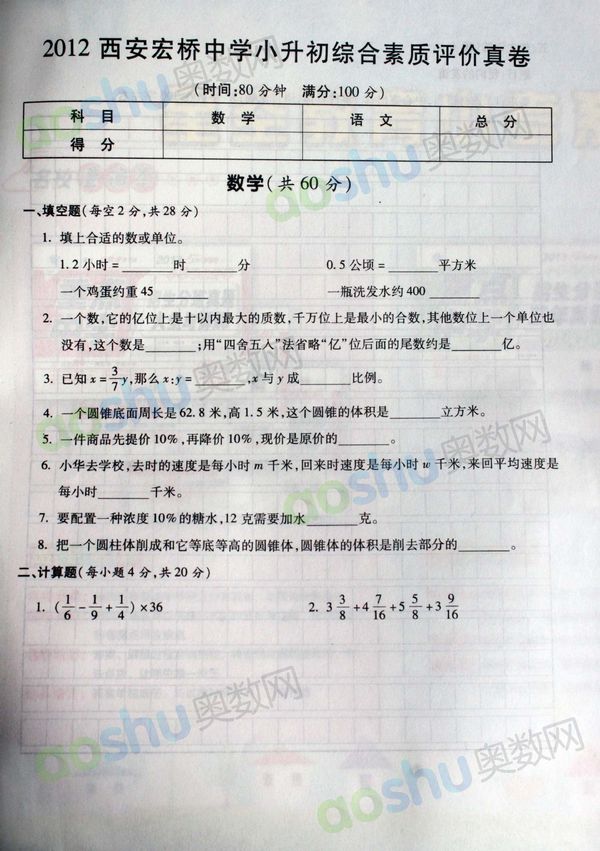 2012 西安宏桥中学小升初综合素质评价真卷
(时间:80 分钟 满分:100 分)
科目 数学 语文 总分
得分
数学(共 60 分)
一、填空题(每空 2 分,共 28 分)
1. 填上合适的数或单位。
1.2 小时 = ______时______分 0.5 公顷 = ______平方米
一个鸡蛋约重 45 ______ 一瓶洗发水约 400 ______
2. 一个数,它的亿位上是十以内最大的质数,千万位上是最小的合数,其他数位上一个单位也
没有,这个数是______;用“四舍五入”法省略“亿”位后面的尾数约是______亿。
3. 已知 x = 3/7 y,那么 x:y = ______,x 与 y 成______比例。
4. 一个圆锥底面周长是 62.8 米,高 1.5 米,这个圆锥的体积是______立方米。
5. 一件商品先提价 10%,再降价 10%,现价是原价的______.
6. 小华去学校,去时的速度是每小时 m 千米,回来时速度是每小时 w 千米,来回平均速度是
每小时______千米。
7. 要配置一种浓度 10%的糖水,12 克需要加水______克。
8. 把一个圆柱体削成和它等底等高的圆锥体,圆锥体的体积是削去部分的______。
二、计算题(每小题 4 分,共 20 分)
1. (1/6 - 1/9 + 1/4) × 36 2. 3 3/8 + 4 7/16 + 5 5/8 + 3 9/16
aoshu奥数网
aoshu奥数网
aoshu奥数网
aoshu奥数网
aoshu奥数网
aoshu奥数网
aoshu奥数网